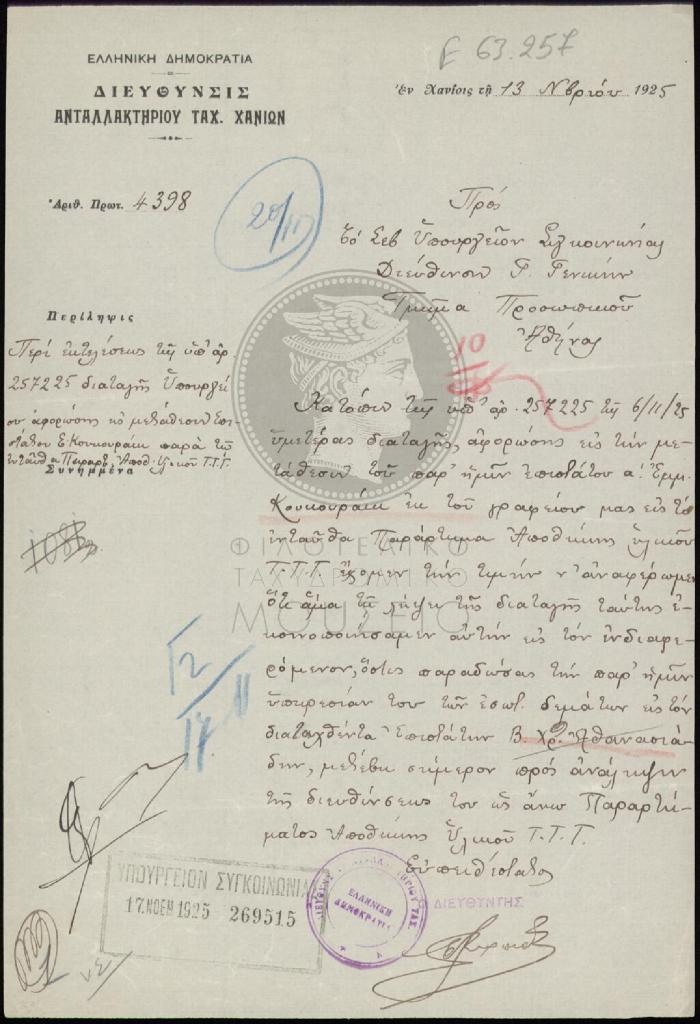 Ε 63.257
ΕΛΛΗΝΙΚΗ ΔΗΜΟΚΡΑΤΙΑ
ΔΙΕΥΘΥΝΣΙΣ
ΑΝΤΑΛΛΑΚΤΗΡΙΟΥ ΤΑΧ. ΧΑΝΙΩΝ
Ἐν Χανίοις τῇ 13 Νβρίου 1925
Ἀριθ. Πρωτ. 4398
20/11
Πρὸς
Τὸ Σεβ Ὑπουργεῖον Συγκοινωνίας
Διεύθυνσιν Τ. Γενικήν
Τμῆμα Προσωπικοῦ
Ἀθήνας
Περίληψις
Περὶ ἐκτελέσεως τῆς ὑπ' ἀρ.
257225 διαταγῆς Ὑπουργεί
ου ἀφορώσης
Ε. Κουκουράκη παρὰ τῷ
ἐνταῦθα Παραρτ. Ἀποθ. Ὑλικοῦ Τ.Τ.Τ.
Συνημμένα
10
Κατόπιν τῆς ὑπ' ἀρ. 257225 τῆς 6/11/25
ὑμετέρας διαταγῆς, ἀφορώσης εἰς τὴν με-
τάθεσιν τοῦ παρ' ἡμῖν ἐπιστάτου α! Ἐμμ.
Κουκουράκη ἐκ τοῦ γραφείου μας εἰς τὸ
ἐνταῦθα Παράρτημα Ἀποθήκης ὑλικοῦ
Τ.Τ.Τ. ἔχομεν τὴν τιμὴν ν' ἀναφέρωμεν
ὅτι ἅμα τῇ λήψει τῆς διαταγῆς ταύτης ἐ-
κοινοποιήσαμεν αὐτὴν εἰς τὸν ἐνδιαφε-
ρόμενον, ὅστις παραδώσας τὴν παρ' ἡμῖν
ὑπηρεσίαν του τῶν ἐσωτ. δεμάτων εἰς τὸν
διαταχθέντα ἐπιστάτην Β. Χρ. Ἀθανασιά-
δην, μετέβη σήμερον πρὸς ἀνάληψιν
τῆς διευθύνσεως του ὡς ἄνω Παραρτή-
ματος Ἀποθήκης Ὑλικοῦ Τ.Τ.Τ.
Εὐπειθέστατος
Ο ΔΙΕΥΘΥΝΤΗΣ
ΕΛΛΗΝΙΚΗ
ΔΗΜΟΚΡΑΤΙΑ
ΥΠΟΥΡΓΕΙΟΝ ΣΥΓΚΟΙΝΩΝΙΑ
17 ΝΟΕΜ 1925 269515
ΦΙΛΟΤΕΛΙΚΟ
ΤΑΧΥΔΡΟΜΙΚΟ
ΜΟΥΣΕΙΟ